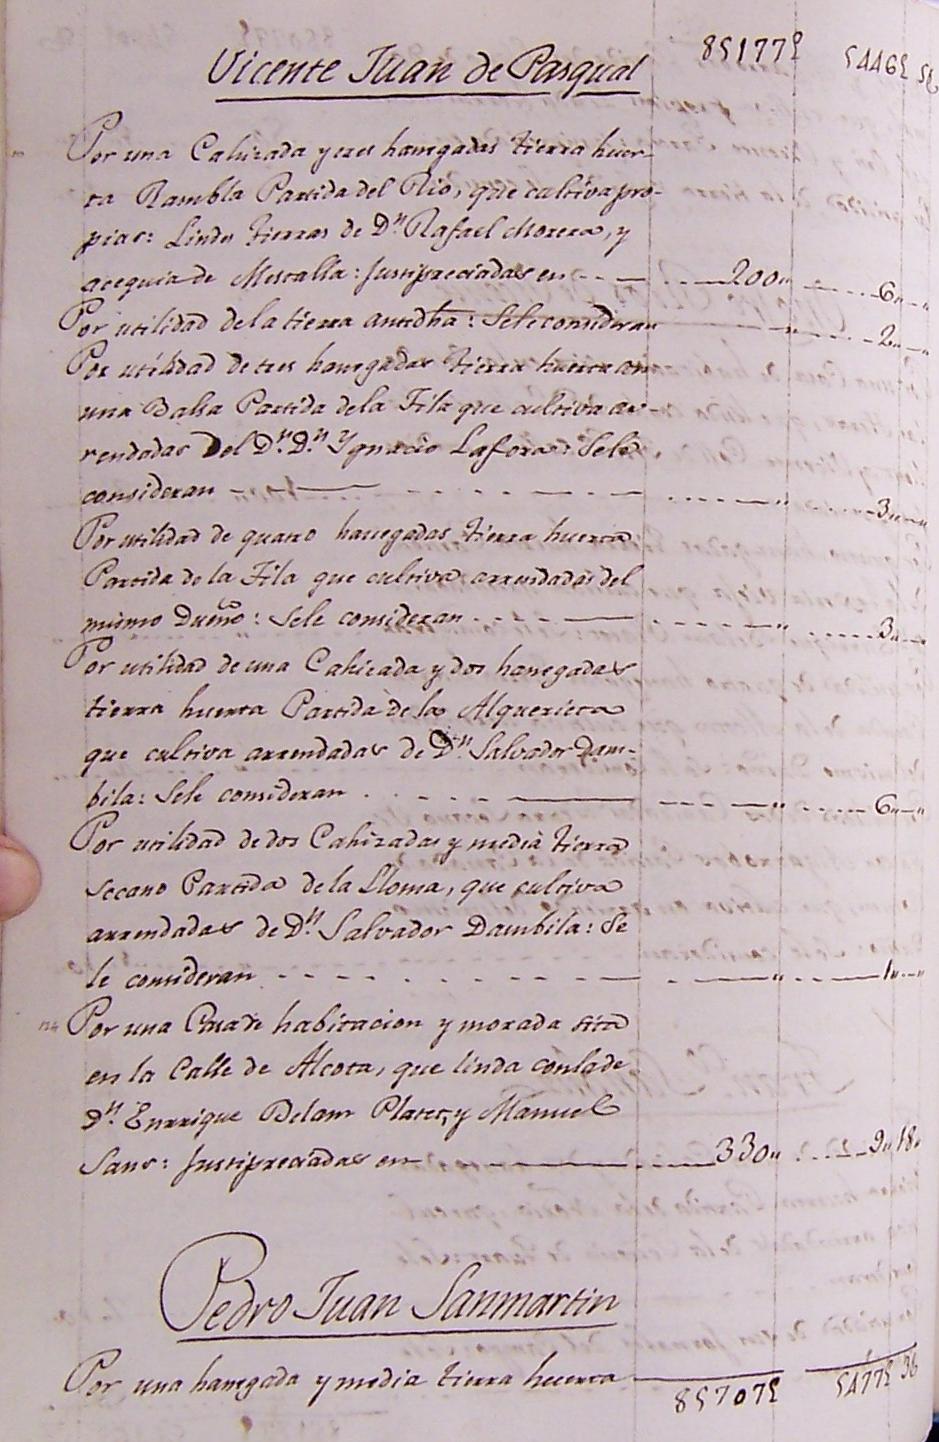 Vicente Juan de Pasqual 85177£ 5446£
Por una Cahizada y tres hanegadas tierra huer-
ta Rambla Partida del Rio, que cultiva pro-
pias: Lindes tierras de Dn. Rafael Morera, y
acequia de Mescalla: Justipreciadas en 200" 6"
Por utilidad de la tierra antedha: Sele consideran " 2"
Por utilidad de tres hanegadas tierra huerta con
una Balsa Partida dela Fila que cultiva ar-
rendadas Del Dn. Dn. Ygnacio Lafora: Sele
consideran " 3"
Por utilidad de quatro hanegadas tierra huerta
Partida de la Fila que cultiva arrendadas del
mismo Dueño: Sele consideran " 3"
Por utilidad de una Cahizada y dos hanegadas
tierra huerta Partida de la Alquerieta
que cultiva arrendadas de Dn. Salvador Dam-
bila: Sele consideran " 6"
Por utilidad de dos Cahizadas y media tierra
Secano Partida de la Lloma, que cultiva
arrendadas de Dn. Salvador Dambila: Se
le consideran " 1"
Por una Casa de habitacion y morada sita
en la Calle de Alcota, que linda con la de
Dn. Enrrique Delam Plater, y Manuel
Sans: Justipreciadas en 330" 9" 18"
Pedro Juan Sanmartin
Por una hanegada y media tierra huerta 85707£ 5477£ 36